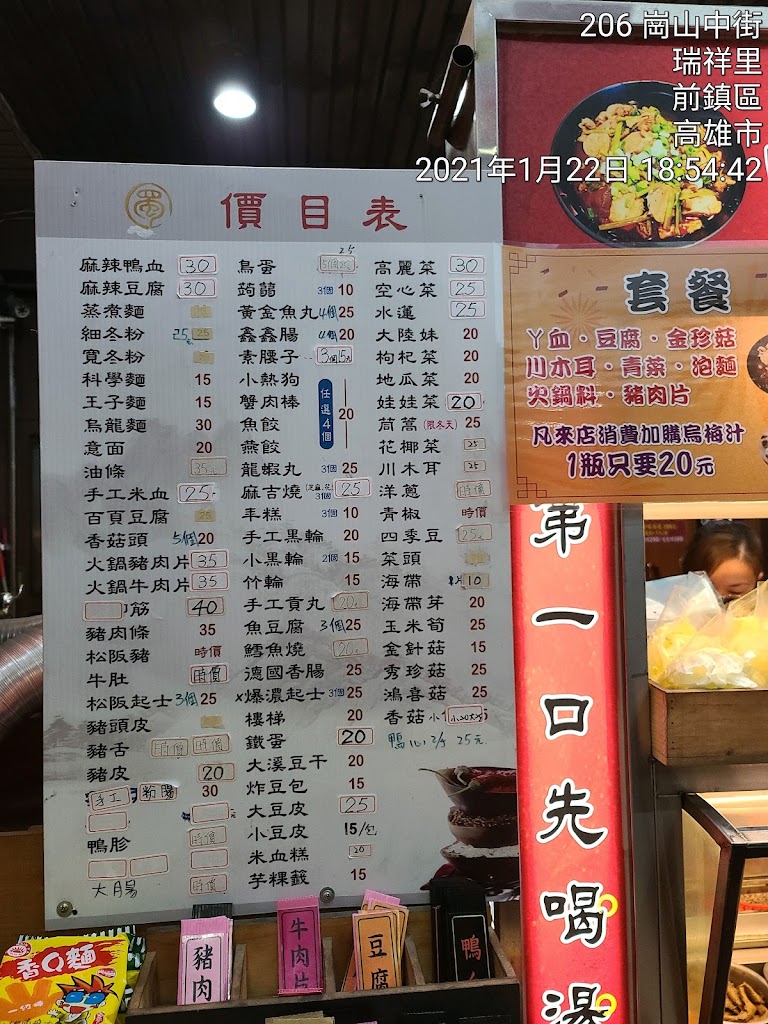 206 崗山中街
瑞祥里
前鎮區
高雄市
2021年1月22日 18:54:42
蜀
價目表
麻辣鴨血 30
麻辣豆腐 30
蒸煮麵
細冬粉 25
寬冬粉
科學麵 15
王子麵 15
烏龍麵 30
意面 20
油條 35元
手工米血 25
百頁豆腐 25
香菇頭 5個20
火鍋豬肉片 35
火鍋牛肉片 35
筋 40
豬肉條 35
松阪豬 時價
牛肚 時價
松阪起士 3個25
豬頭皮
豬舌 時價 時價
豬皮 20
手工 粉腸 30
鴨胗 時價
大腸 時價
鳥蛋 5個25
蒟蒻 3個 10
黃金魚丸 4個25
鑫鑫腸 4個20
素腰子 3個15元
小熱狗
蟹肉棒
魚餃
燕餃
任選4個 20
龍蝦丸 3個 25
麻古燒 3個 25
年糕 3個 10
手工黑輪 20
小黑輪 2個 15
竹輪 15
手工貢丸 20元
魚豆腐 3個25
鱈魚燒 20元
德國香腸 25
x爆濃起士 3個25
樓梯 20
鐵蛋 20
大溪豆干 20
炸豆包 15
大豆皮 25
小豆皮 15/包
米血糕 20
芋粿籤 15
高麗菜 30
空心菜 25
水蓮 25
大陸妹 20
枸杞菜 20
地瓜菜 20
娃娃菜 20
茼蒿(限冬天) 25
花椰菜 25
川木耳 25
洋蔥 時價
青椒 時價
四季豆 25元
菜頭
海帶 10
海帶芽 20
玉米筍 25
金針菇 15
秀珍菇 25
鴻喜菇 25
香菇
鴨心 25元
套餐
ㄚ血·豆腐·金珍菇
川木耳·青菜·泡麵
火鍋料·豬肉片
凡來店消費加購烏梅汁
1瓶只要20元
第一口先喝湯
香Q麵
豬肉
牛肉片
豆腐
鴨